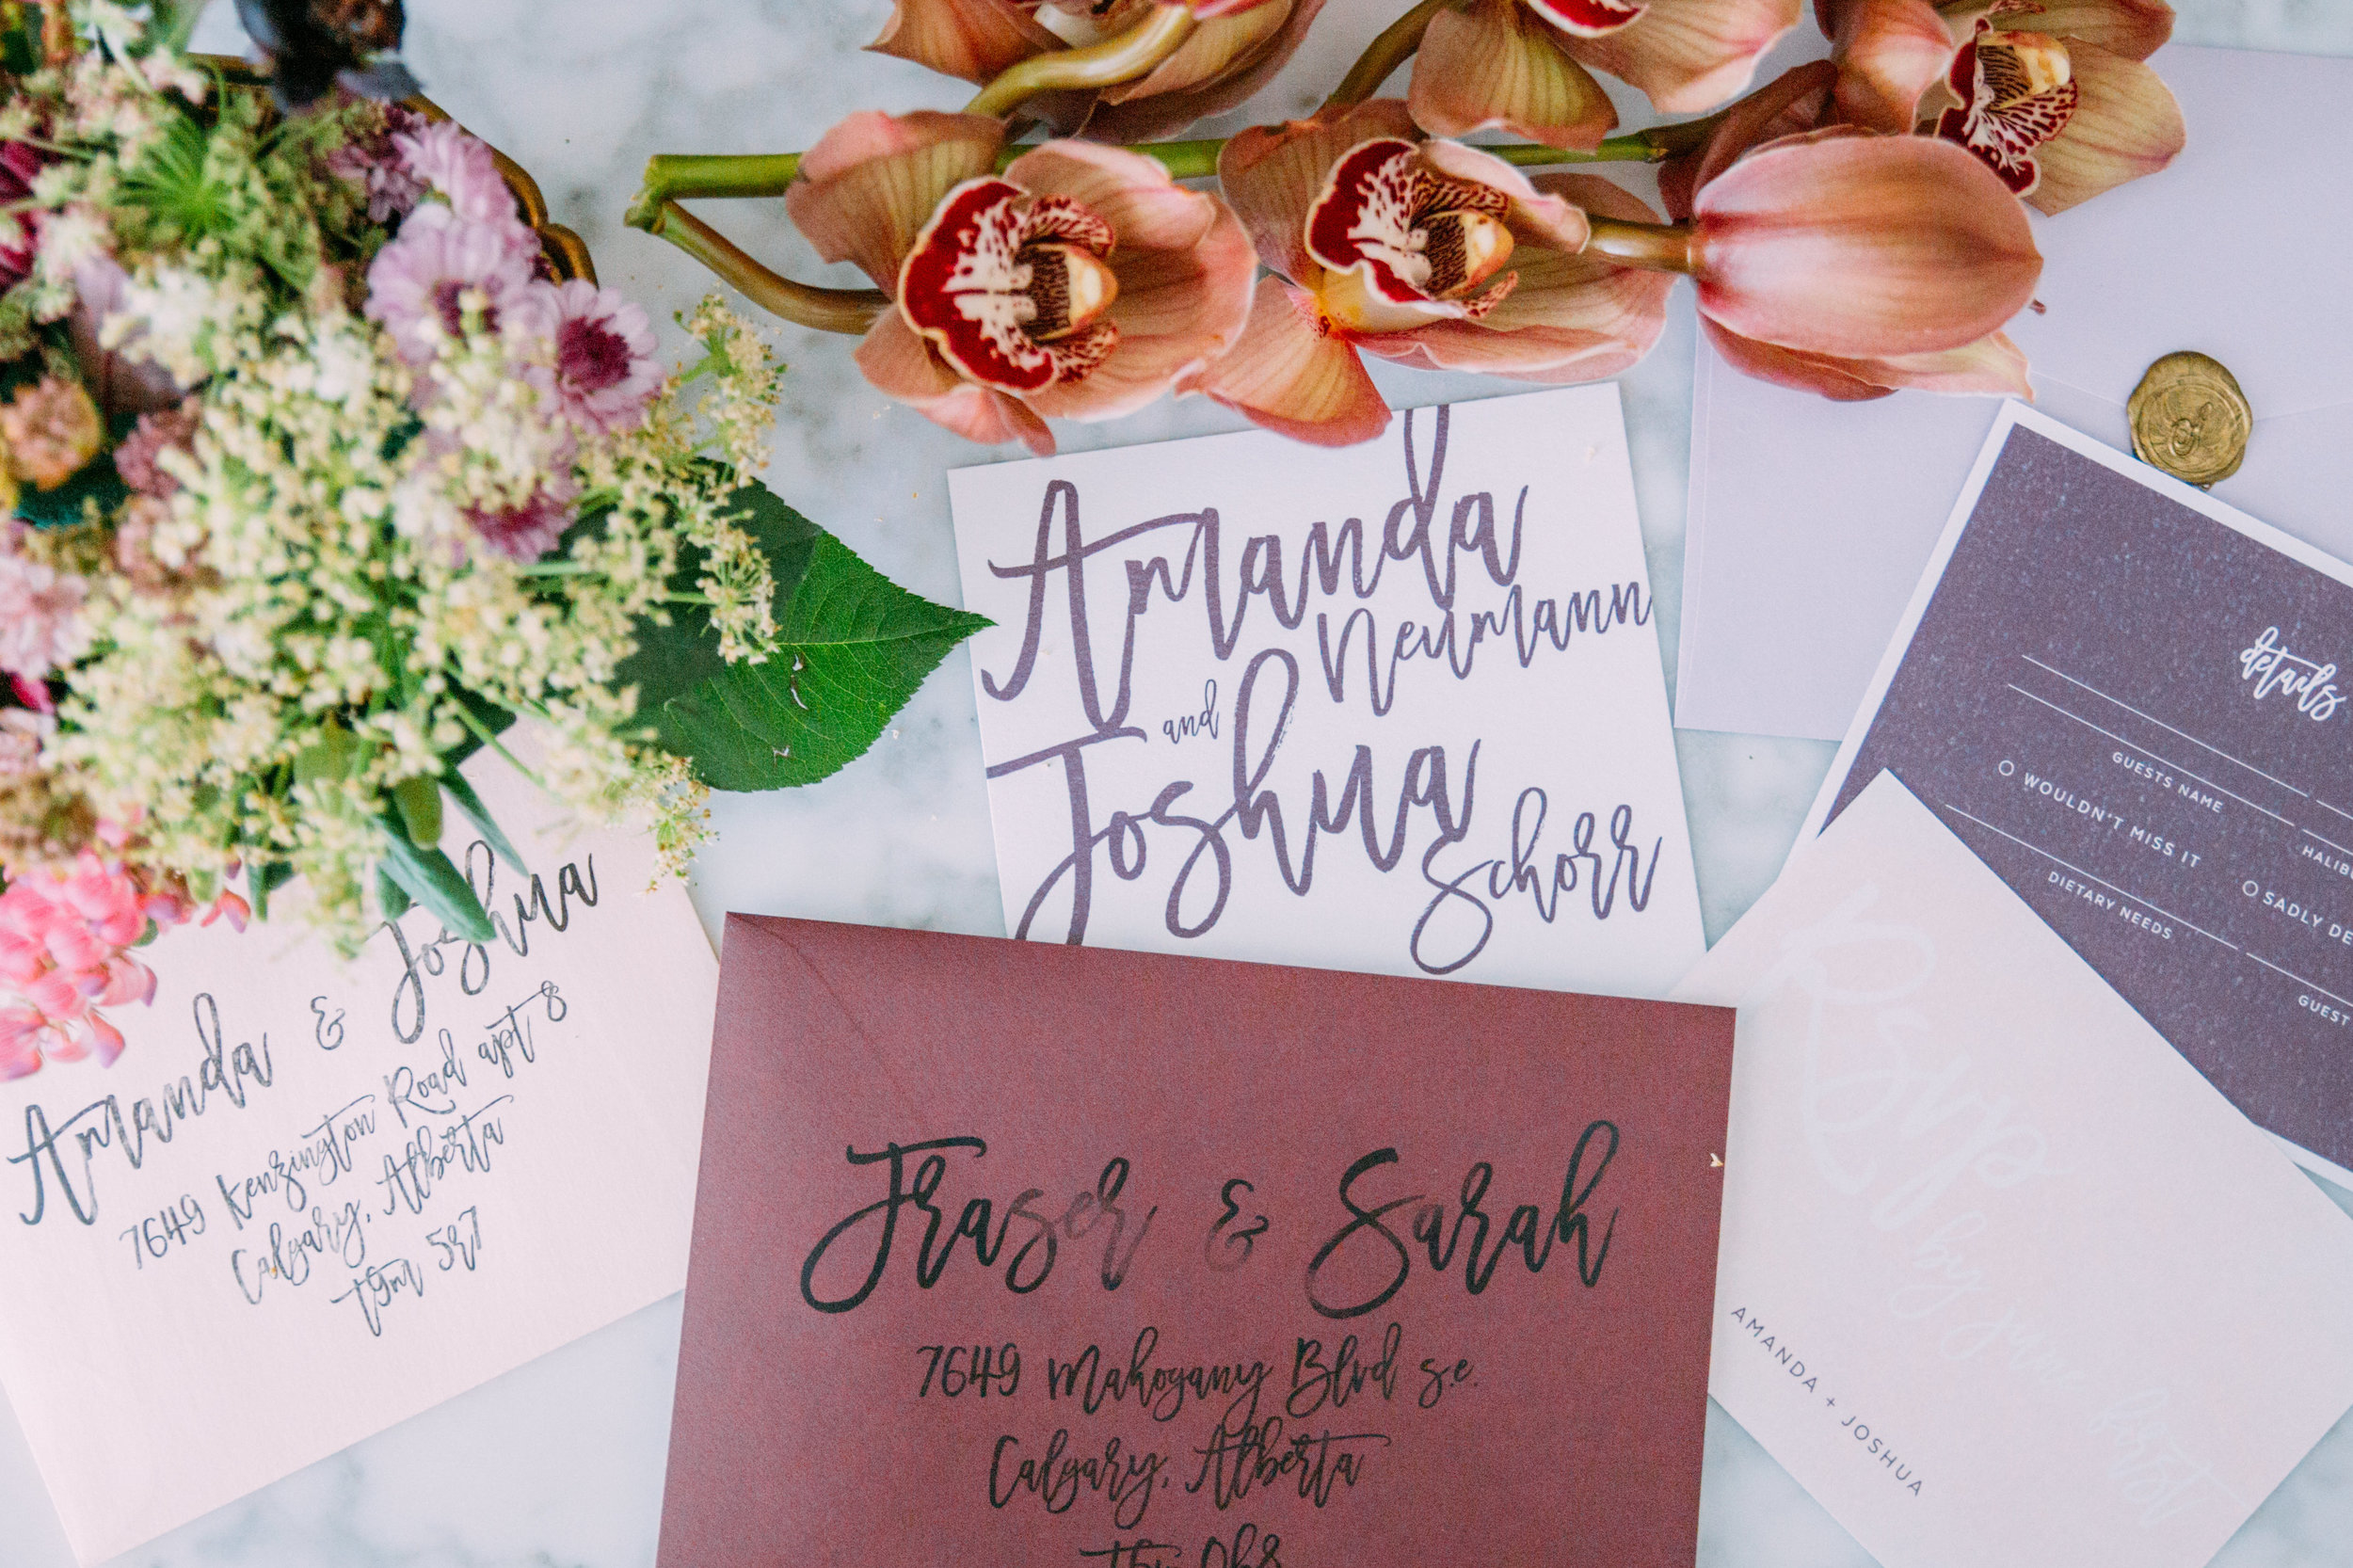 Amanda
Neumann
and
Joshua
Schorr
details
GUESTS NAME
WOULDN'T MISS IT
SADLY DE
DIETARY NEEDS
GUEST
Amanda & Joshua
7649 Kenzington Road apt 8
Calgary, Alberta
Fraser & Sarah
7649 Mahogany Blvd s.e.
Calgary, Alberta
Rsvp
by
AMANDA + JOSHUA